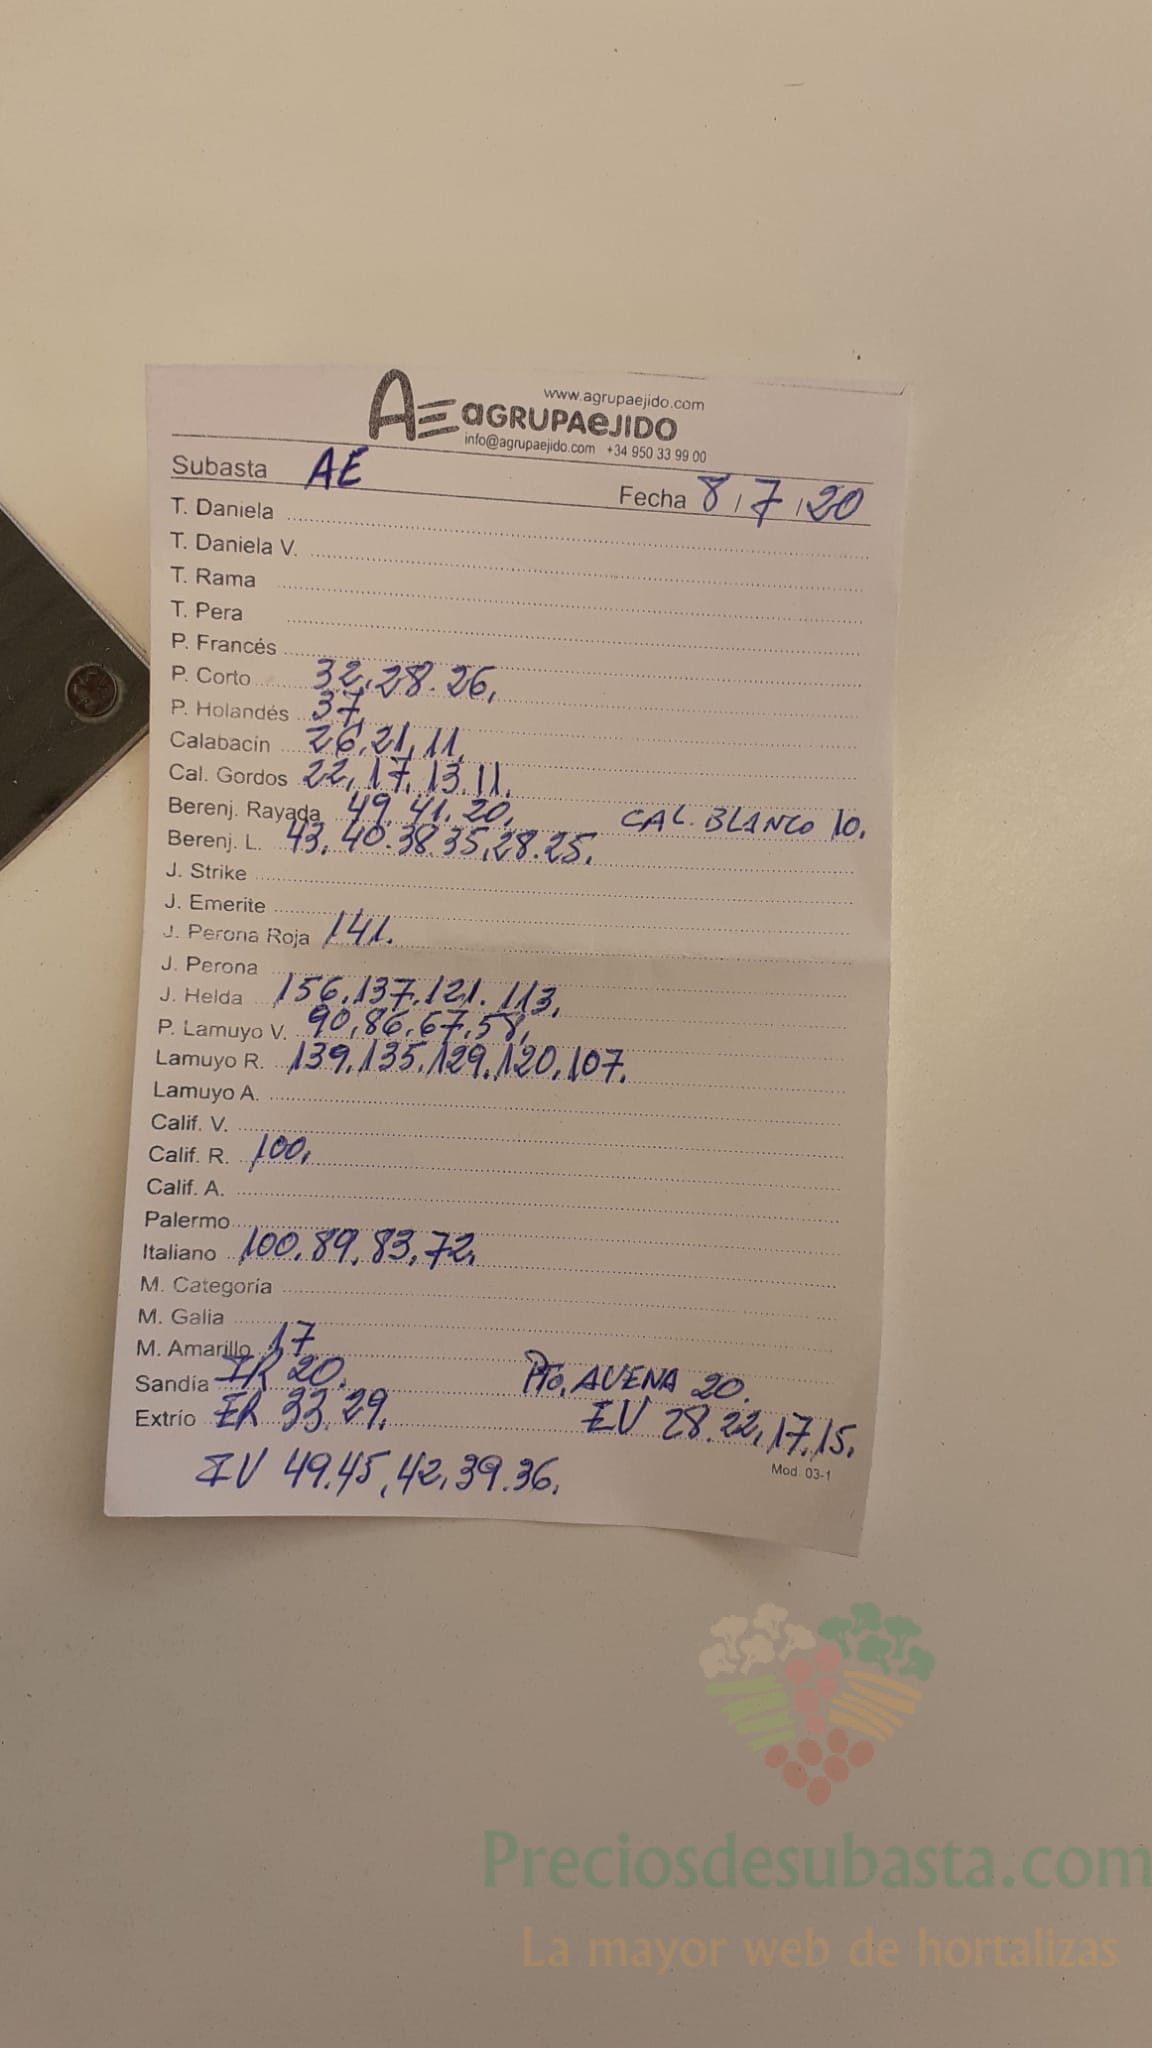 www.agrupaejido.com
AE aGRUPAeJIDO
info@agrupaejido.com +34 950 33 99 00
Subasta AE Fecha 8/7/20
T. Daniela
T. Daniela V.
T. Rama
T. Pera
P. Francés
P. Corto 32,28.26,
P. Holandés 37,
Calabacín 26,21,11,
Cal. Gordos 22,17,13.11.
Berenj. Rayada 49.41.20, CAL. BLANCO 10.
Berenj. L. 43.40.38.35,28.25.
J. Strike
J. Emerite
J. Perona Roja 141.
J. Perona
J. Helda 156.137.121.113,
P. Lamuyo V. 90,86.67.58,
Lamuyo R. 139,135,129.120,107.
Lamuyo A.
Calif. V.
Calif. R. 100,
Calif. A.
Palermo
Italiano 100.89,83,72.
M. Categoría
M. Galia
M. Amarillo 17
Sandía IR 20. Pto. AVENA 20.
Extrío ER 33.29. EV 28.22,17.15.
IV 49.45,42,39.36.
Mod. 03-1
Preciosdesubasta.com
La mayor web de hortalizas